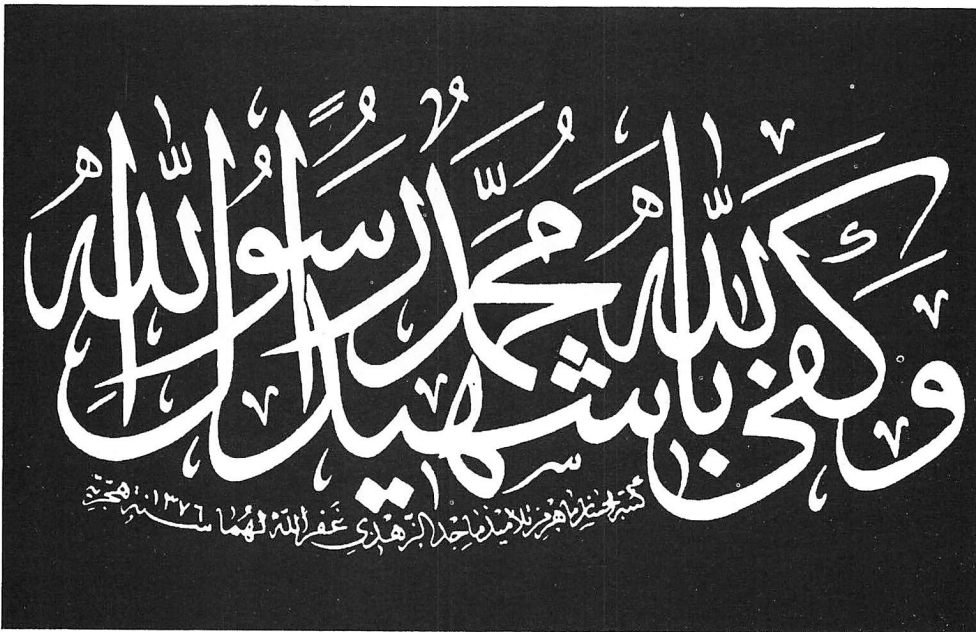 وَكَفَى بِاللّٰهِ شَهِيدًا مُحَمَّدٌ رَسُولُ اللّٰهِ
كتبه من تلاميذ ماجد الزهدي غفر الله لهما سنة ١٣٧٦ هجرية